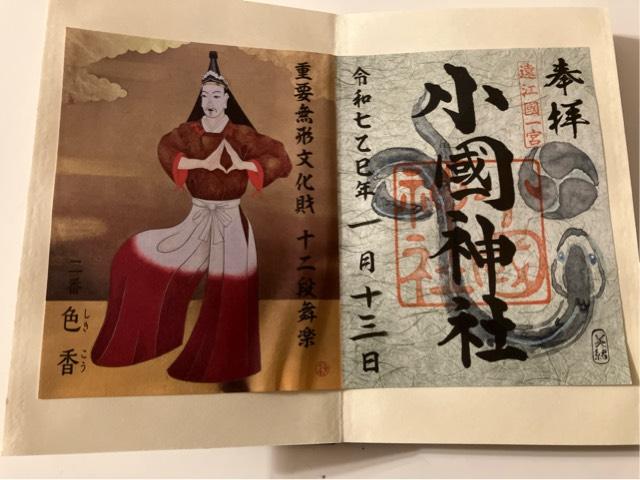 奉拝
遠江國一宮
小國神社
令和七乙巳年 一月十三日
重要無形文化財 十二段舞楽
二番
色香
しき こう